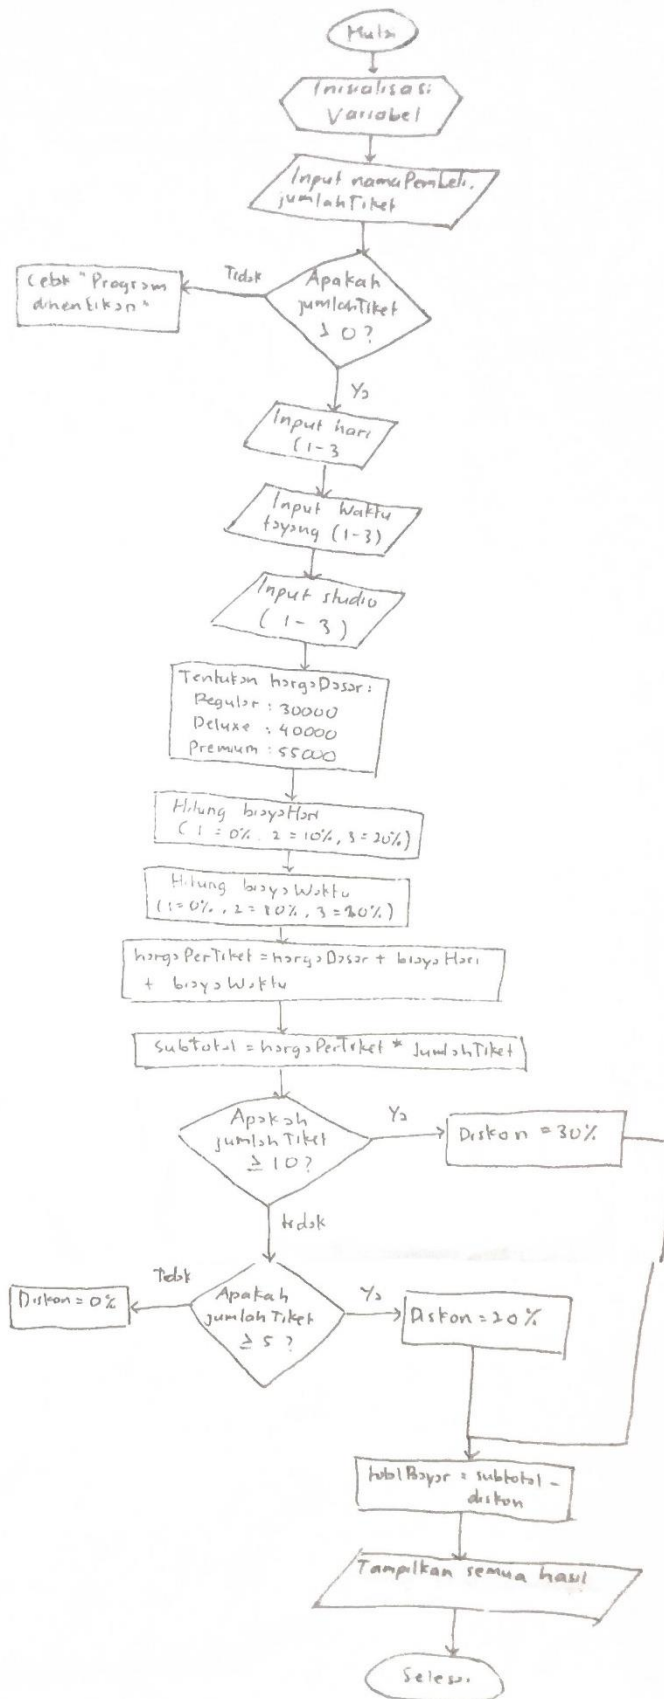 Mulai
Inisialisasi
Variabel
Input namaPembeli,
jumlahTiket
Tidak
Apakah
jumlahTiket
> 0 ?
Cetak "Program
dihentikan"
Ya
Input hari
(1-3
Input Waktu
tayang (1-3)
Input studio
(1-3)
Tentukan hargaDasar:
Regular : 30000
Deluxe : 40000
Premium : 55000
Hitung biayaHari
(1 = 0%, 2 = 10%, 3 = 20%)
Hitung biayaWaktu
(1 = 0%, 2 = 10%, 3 =
hargaPerTiket = hargaDasar + biayaHari
+ biayaWaktu
subtotal = hargaPerTiket * jumlahTiket
Apakah
jumlahTiket
≥ 10 ?
Ya
Diskon = 30%
tidak
Tidak
Diskon = 0%
Apakah
jumlahTiket
≥ 5 ?
Ya
Diskon = 20%
totalBayar = subtotal -
diskon
Tampilkan semua hasil
Selesai